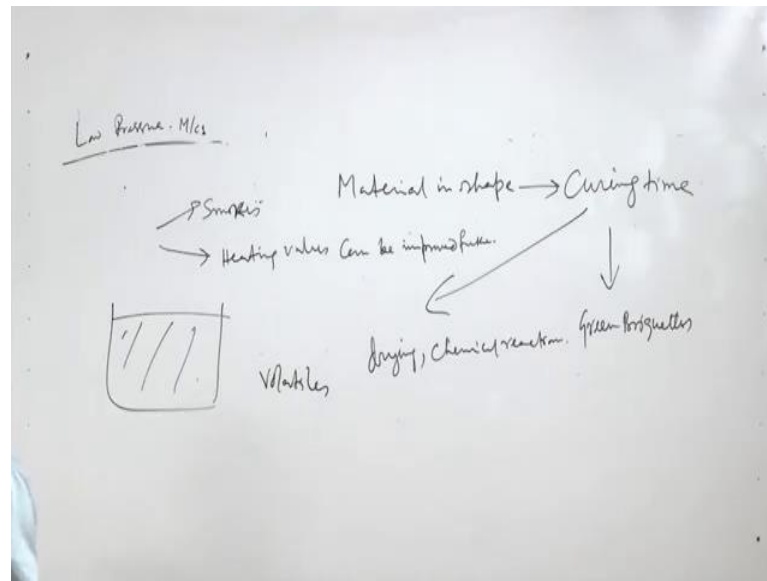 Low Pressure. M/cs
Material in shape → Curing time
Heating values Can be improved
drying, Chemical reaction.
Green Briquettes
Volatiles